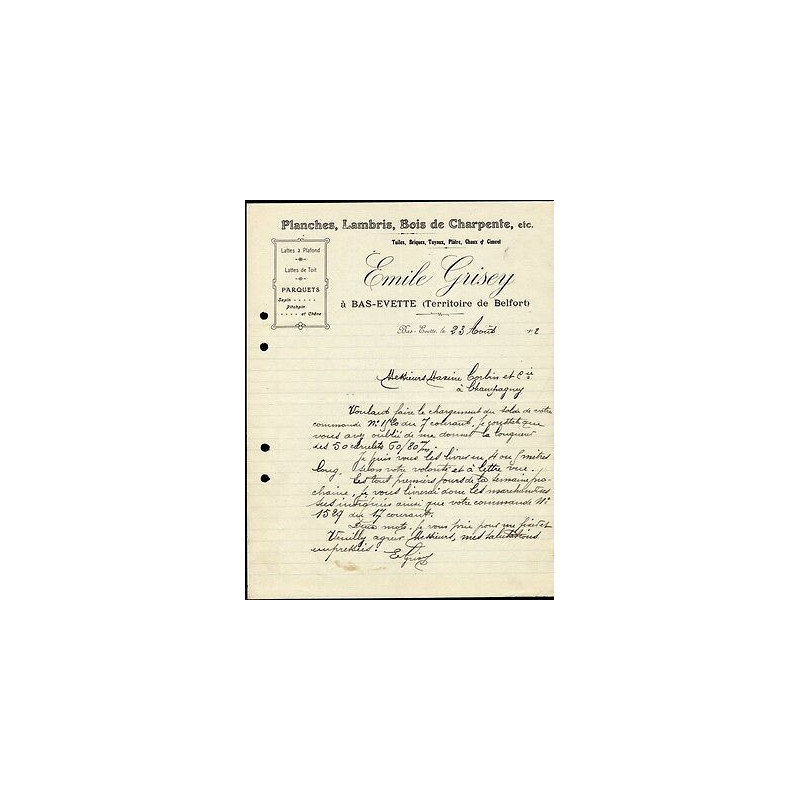 Planches, Lambris, Bois de Charpente, etc.
Tuiles, Briques, Tuyaux, Plâtre, Chaux & Ciment
Lattes à Plafond
Lattes de Toit
PARQUETS
Sapin
Pitchpin
et Chêne
Emile Grisey
à BAS-EVETTE (Territoire de Belfort)
Bas-Evette, le 23 Août 2
Messieurs Maxime Corbin et Cie
à Champagney
Voulant faire le chargement du solde de votre
commande No du 7 courant, je constate que
vous avez oublié de me donner la longueur
des 50 carrelets 60/80
Je puis vous les livrer en 4 ou 5 mètres
long selon votre volonté et à lettre vue.
Les tout premiers jours de la semaine pro-
chaine, je vous livrerai donc les marchandises
ainsi que votre commande No
1529 du 17 courant.
Deux mots, je vous prie pour me fixer et
Veuillez agréer Messieurs, mes salutations
empressées.
EGrisey